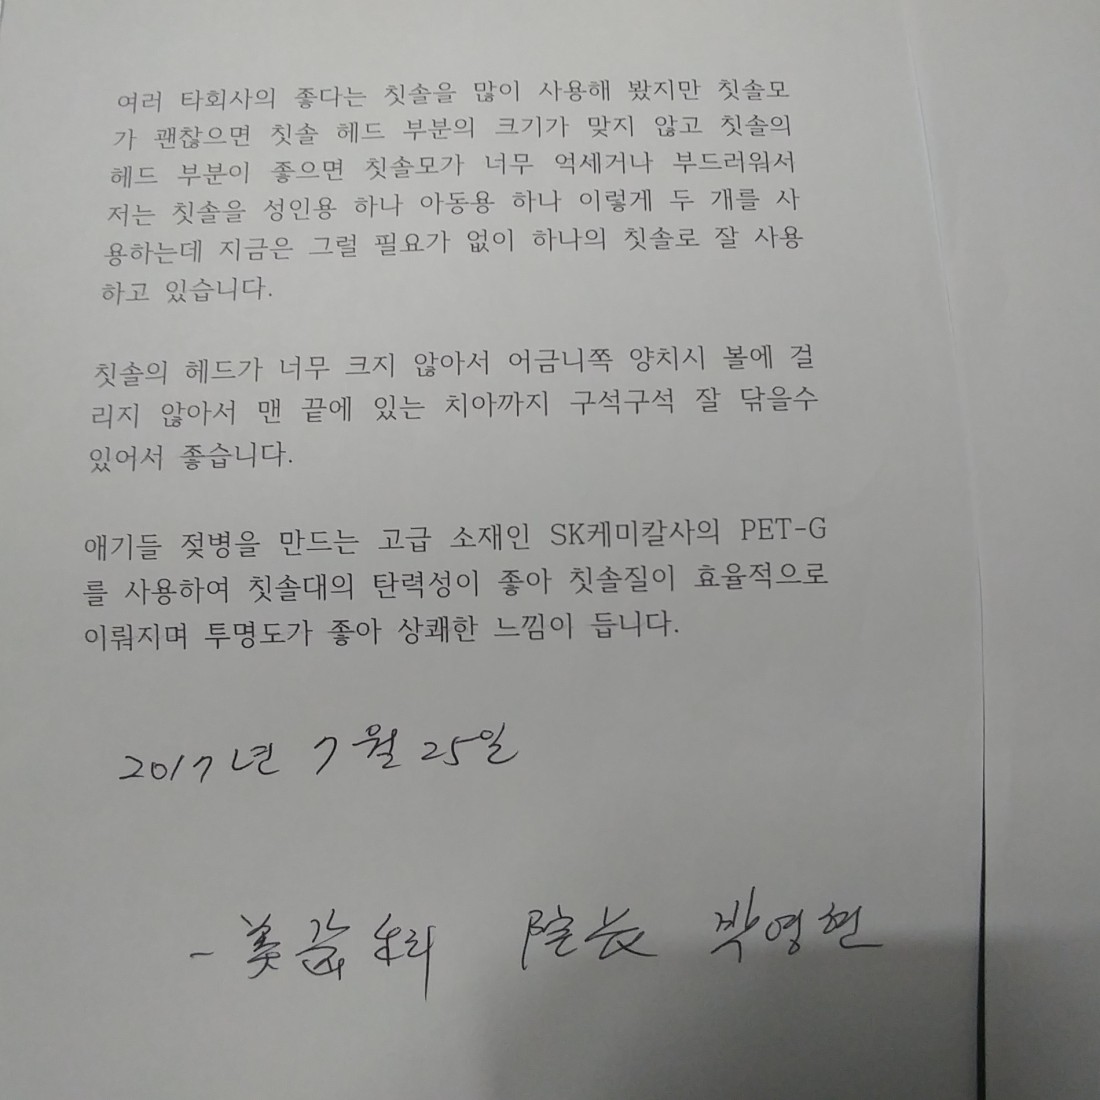 여러 타회사의 좋다는 칫솔을 많이 사용해 봤지만 칫솔모
가 괜찮으면 칫솔 헤드 부분의 크기가 맞지 않고 칫솔의
헤드 부분이 좋으면 칫솔모가 너무 억세거나 부드러워서
저는 칫솔을 성인용 하나 아동용 하나 이렇게 두 개를 사
용하는데 지금은 그럴 필요가 없이 하나의 칫솔로 잘 사용
하고 있습니다.
칫솔의 헤드가 너무 크지 않아서 어금니쪽 양치시 볼에 걸
리지 않아서 맨 끝에 있는 치아까지 구석구석 잘 닦을수
있어서 좋습니다.
애기들 젖병을 만드는 고급 소재인 SK케미칼사의 PET-G
를 사용하여 칫솔대의 탄력성이 좋아 칫솔질이 효율적으로
이뤄지며 투명도가 좋아 상쾌한 느낌이 듭니다.
2017년 7월 25일
- 美齒科 院長 박영현